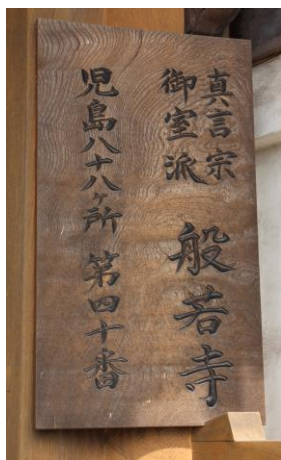 真言宗
御室派
般若寺
児島八十八ヶ所 第四十番